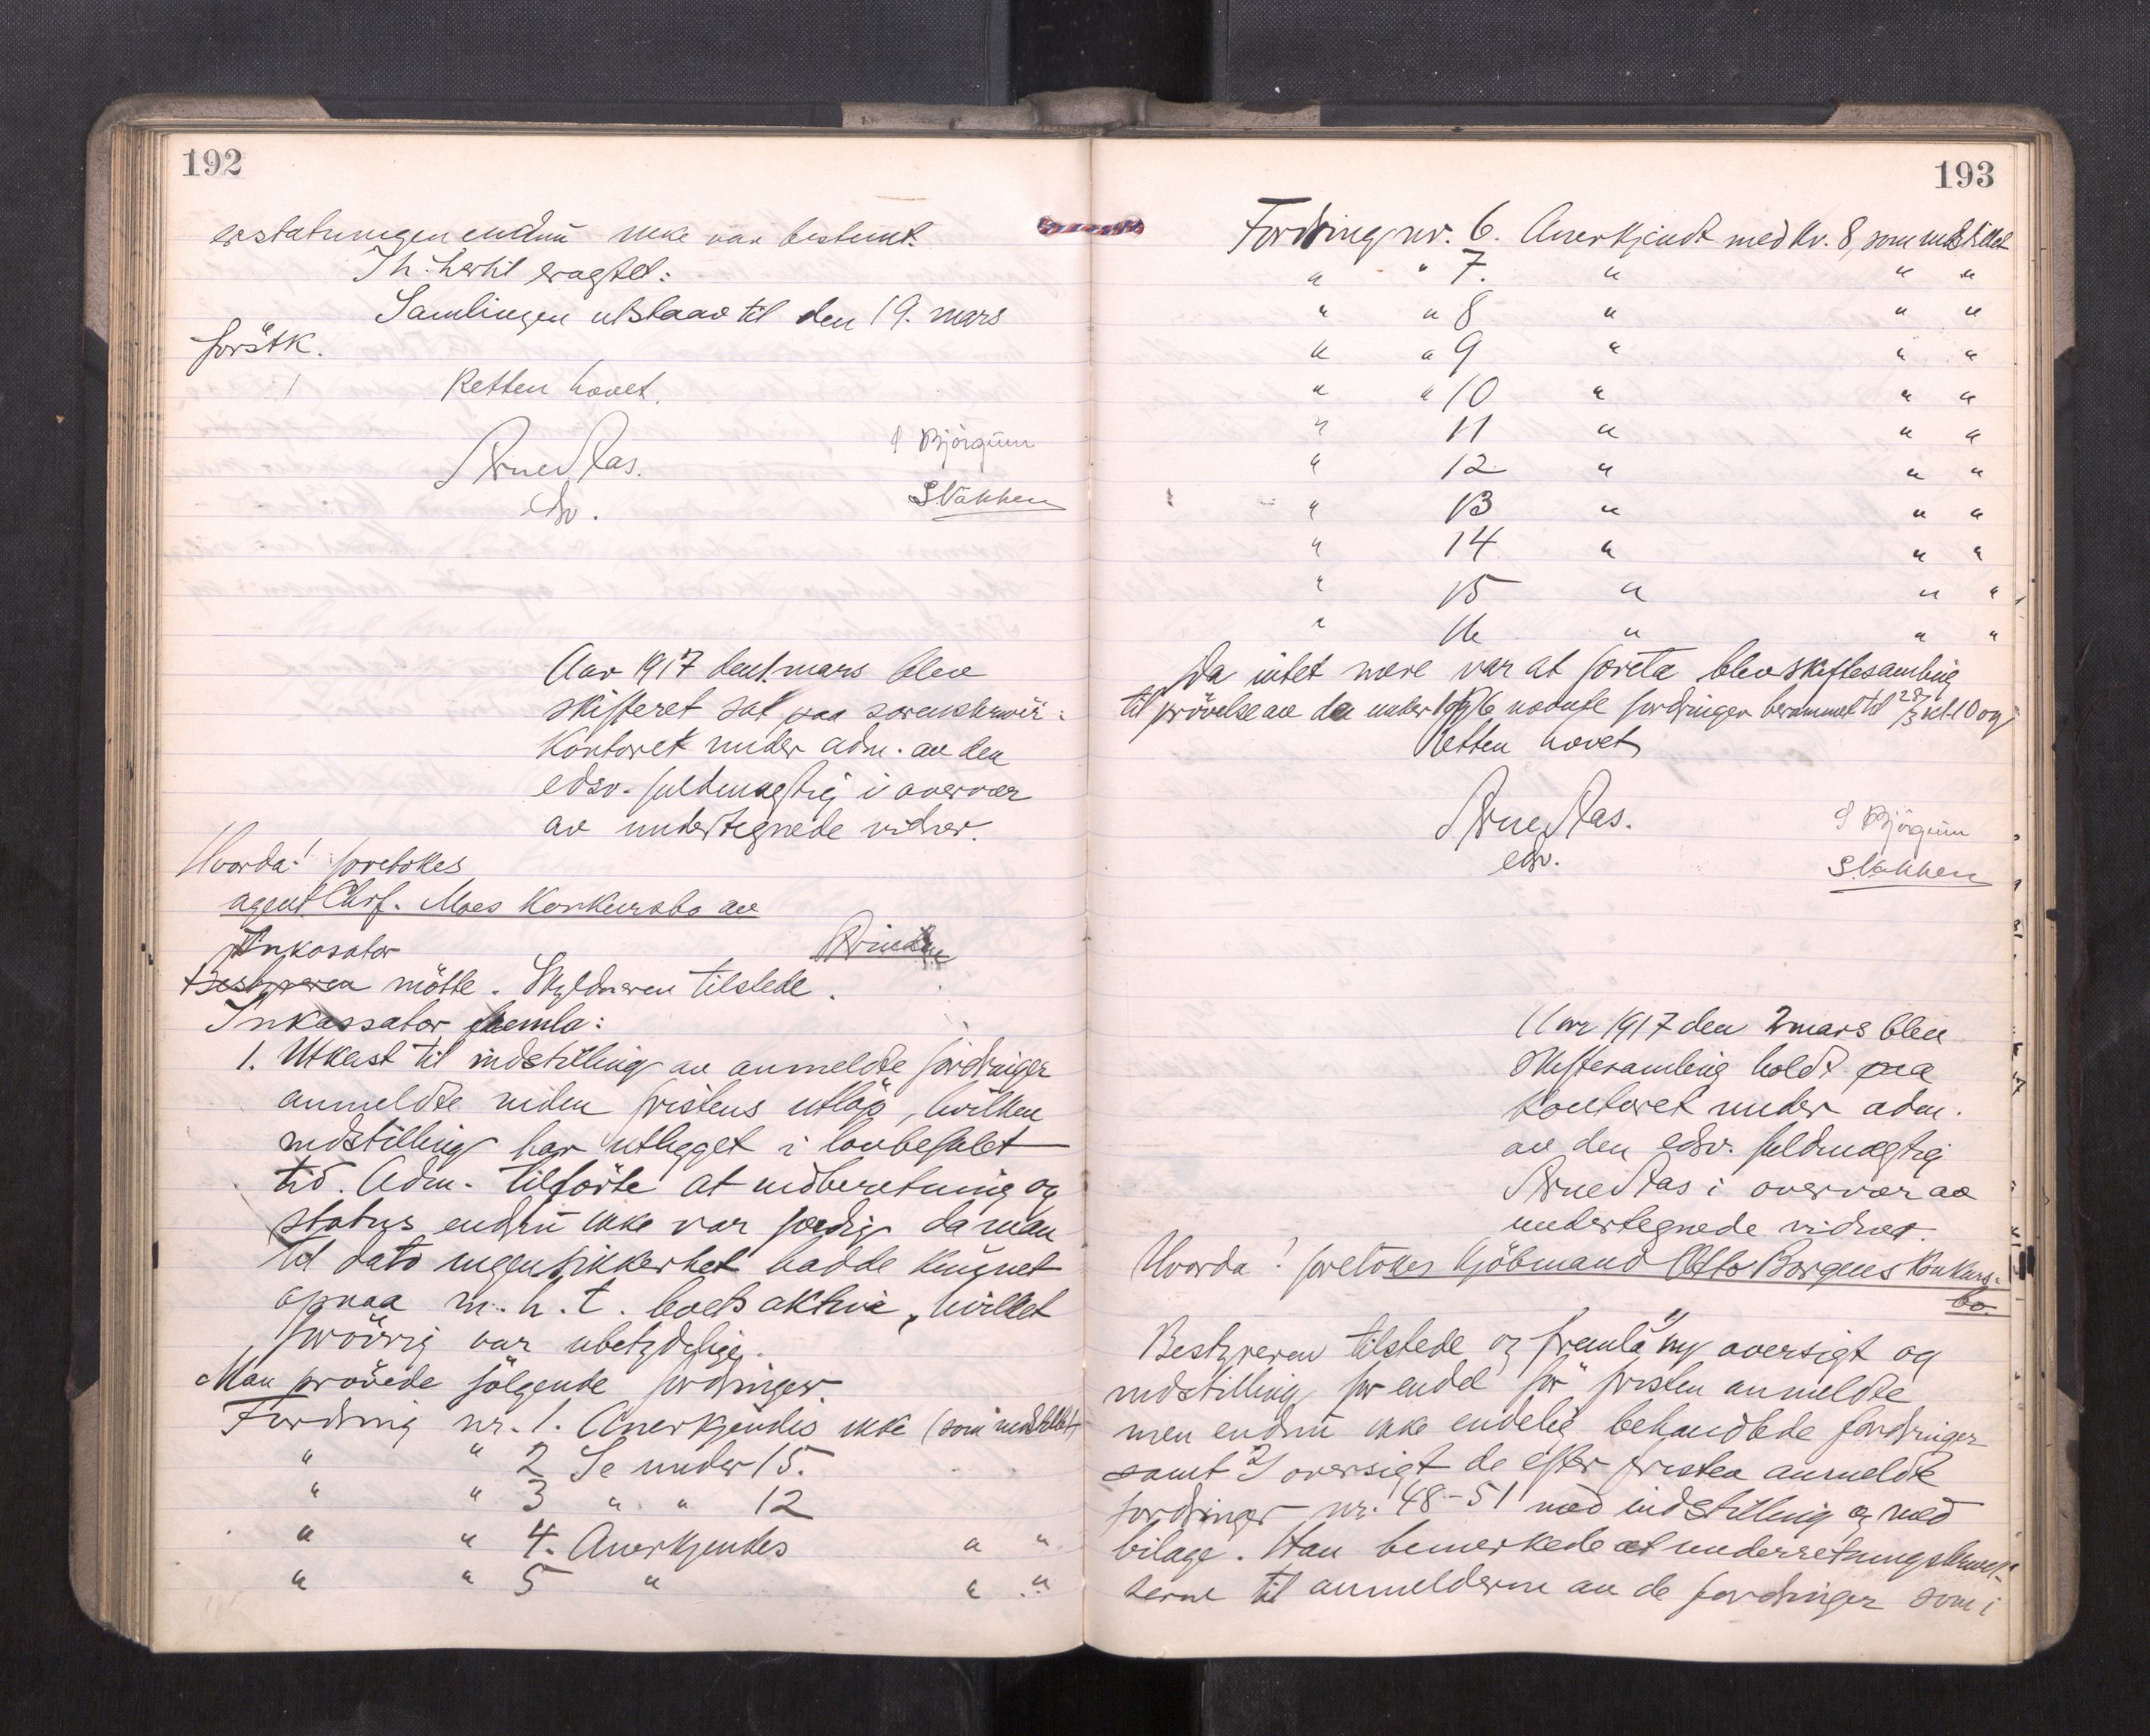 192
erstatningen endnu ikke var bestemt.
Th. hertil eragtet:
Samlingen utstaar til den 19. mars
förstk.
Retten hævet.
Arne Aas.
edsv.
I Björgum
S Vakken
Aar 1917 den 1. mars blev
skifteret sat paa sorenskriver-
kontoret under adm. av den
edsv. fuldmægtig i overvær
av undertegnede vidner.
Hvorda! foretokes
agent Chrf. Moes konkursbo av
Inkasator
Bestyreren mötte. Skyldneren tilstede.
Inkassator fremla:
1. Utkast til indstilling av anmeldte fordringer
anmeldte inden fristens utløp, hvilken
indstilling har utlegget i lovbefalet
tid. Adm. tilförte at indberetning og
status endnu ikke var færdig da man
til dato ingen sikkerhet hadde kunnet
opnaa m.h.t. boets aktiva, hvilket
forövrig var ubetydelige.
Man prövede følgende fordringer.
Fordring nr. 1. Anerkjendes ikke (som indstillet)
" " 2 Se under 15.
" " 3 " " 12
" " 4. Anerkjendes " "
" " 5 " " "
193
Fordring nr. 6. Anerkjendt med kr. 8, som indstillet
" " 7. " " "
" " 8 " " "
" " 9 " " "
" " 10 " " "
" 11 " " "
" 12 " " "
" 13 " " "
" 14 " " "
" 15 " " "
" 16 " " "
Da intet mere var at foreta blev skiftesamling
til prövelse av de under 1 og 6 nævnte fordringer berammet til 28/3 kl. 10 og
Retten hævet
Arne Aas.
edsv.
I Björgum
S. Vakken
Aar 1917 den 2 mars blev
skiftesamling holdt paa
kontoret under adm.
av den edsv. fuldmægtig
Arne Aas i overvær av
undertegnede vidner.
Hvorda! foretokes Kjöbmand Otto Borgens konkurs-
bo.
Bestyreren tilstede og fremla 1) ny oversigt og
indstilling for endel før fristen anmeldte
men endnu ikke endelig behandlede fordringer
samt 2) oversigt de efter fristen anmeldte
fordringer nr. 48-51 med indstilling og med
bilage. Han bemerkede at underretningskrivel-
serne til anmelderne av de fordringer som i